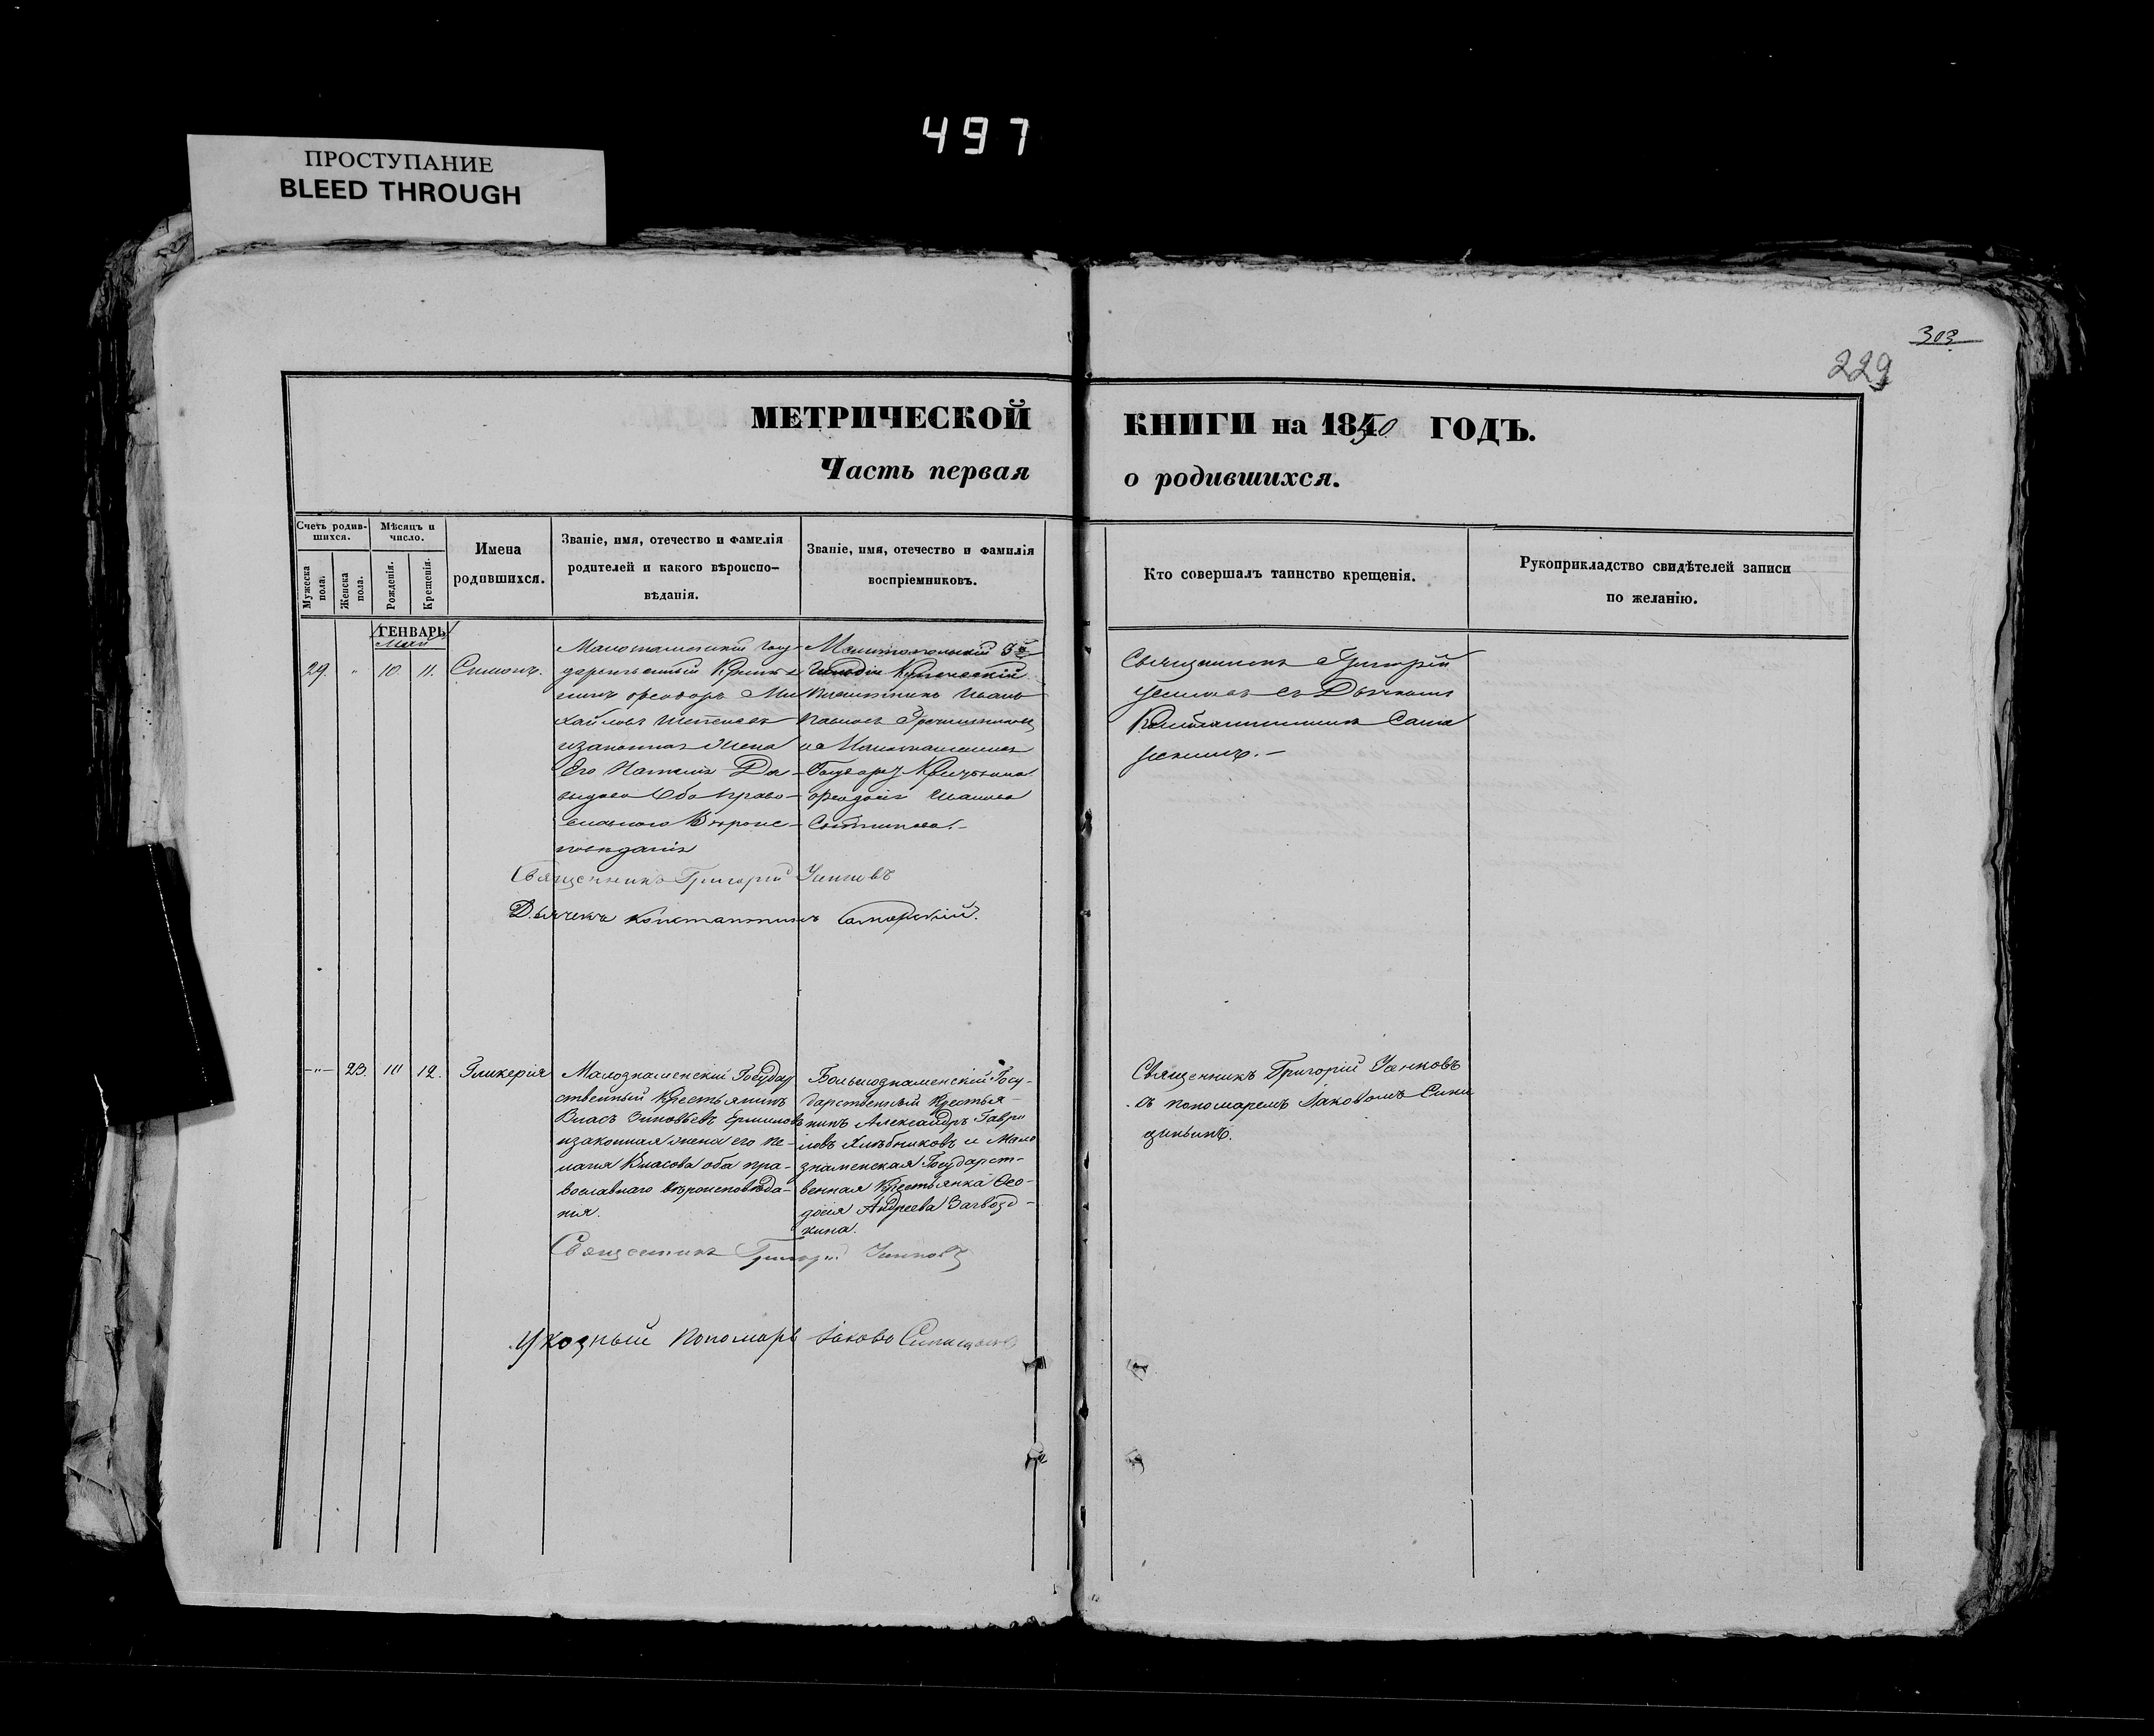 497
ПРОСТУПАНИЕ
BLEED THROUGH
303
229
МЕТРИЧЕСКОЙ КНИГИ на 1850 ГОДЪ.
Часть первая о родившихся.
Счетъ родив-
шихся.
Мѣсяцъ и
число.
Мужеска
пола.
Женска
пола.
Рожденія.
Крещенія.
Имена
родившихся.
Званіе, имя, отечество и фамилія
родителей и какого вѣроиспо-
вѣданія.
Званіе, имя, отечество и фамилія
воспріемниковъ.
Кто совершалъ таинство крещенія.
Рукоприкладство свидѣтелей записи
по желанію.
ГЕНВАРЬ
Май
29. " 10 11. Симонъ.
Малознаменскій Госу-
дарственный Крестья
нинъ Ѳеодоръ Ми
хайловъ
изаконная Жена
Его Наталія Да-
выдова Оба Право-
славнаго Вѣроис-
повѣданія
Мелитопольскій 3й
Гильдіи Купеческій
Иванъ
Павловъ
и Малознаменская
Государ Крестьянка
Ѳеодосія Иванова
Священникъ Григорій
съ Дьячкомъ
Константиномъ Сама
рскимъ.-
Священникъ Григорій
Дьячекъ Константинъ Самарскій.
-"- 23. 10 12. Гликерія
Малознаменскій Государ
ственный Крестьянинъ
Власъ Зиновьевъ Ермиловъ
изаконная жена его Пе-
лагия Власова оба пра-
вославнаго вѣроисповѣда-
ния.
Большознаменскій Госу-
дарственный Крестья-
нинъ Александръ Гаври
ловъ Хлѣбниковъ и Мало
знаменская Государст-
венная Крестьянка Ѳео-
досія Андреева Загвозд-
кина.
Священникъ Григорій Уенковъ
съ пономаремъ Іаковомъ Сини
цынымъ.
Священникъ Григорій
Указный Пономарь Іаковъ Синицынъ